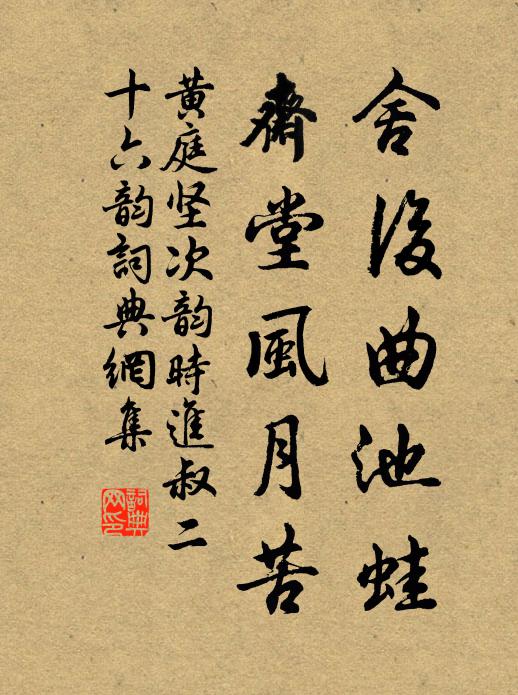 舍後曲池蛙
齋堂風月苦
黄庭坚次韵時進叔二
十六韵詞典網集
詞典網印